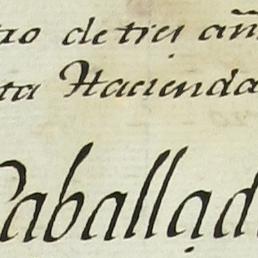 de tres añ
ta Hacienda
Caballad